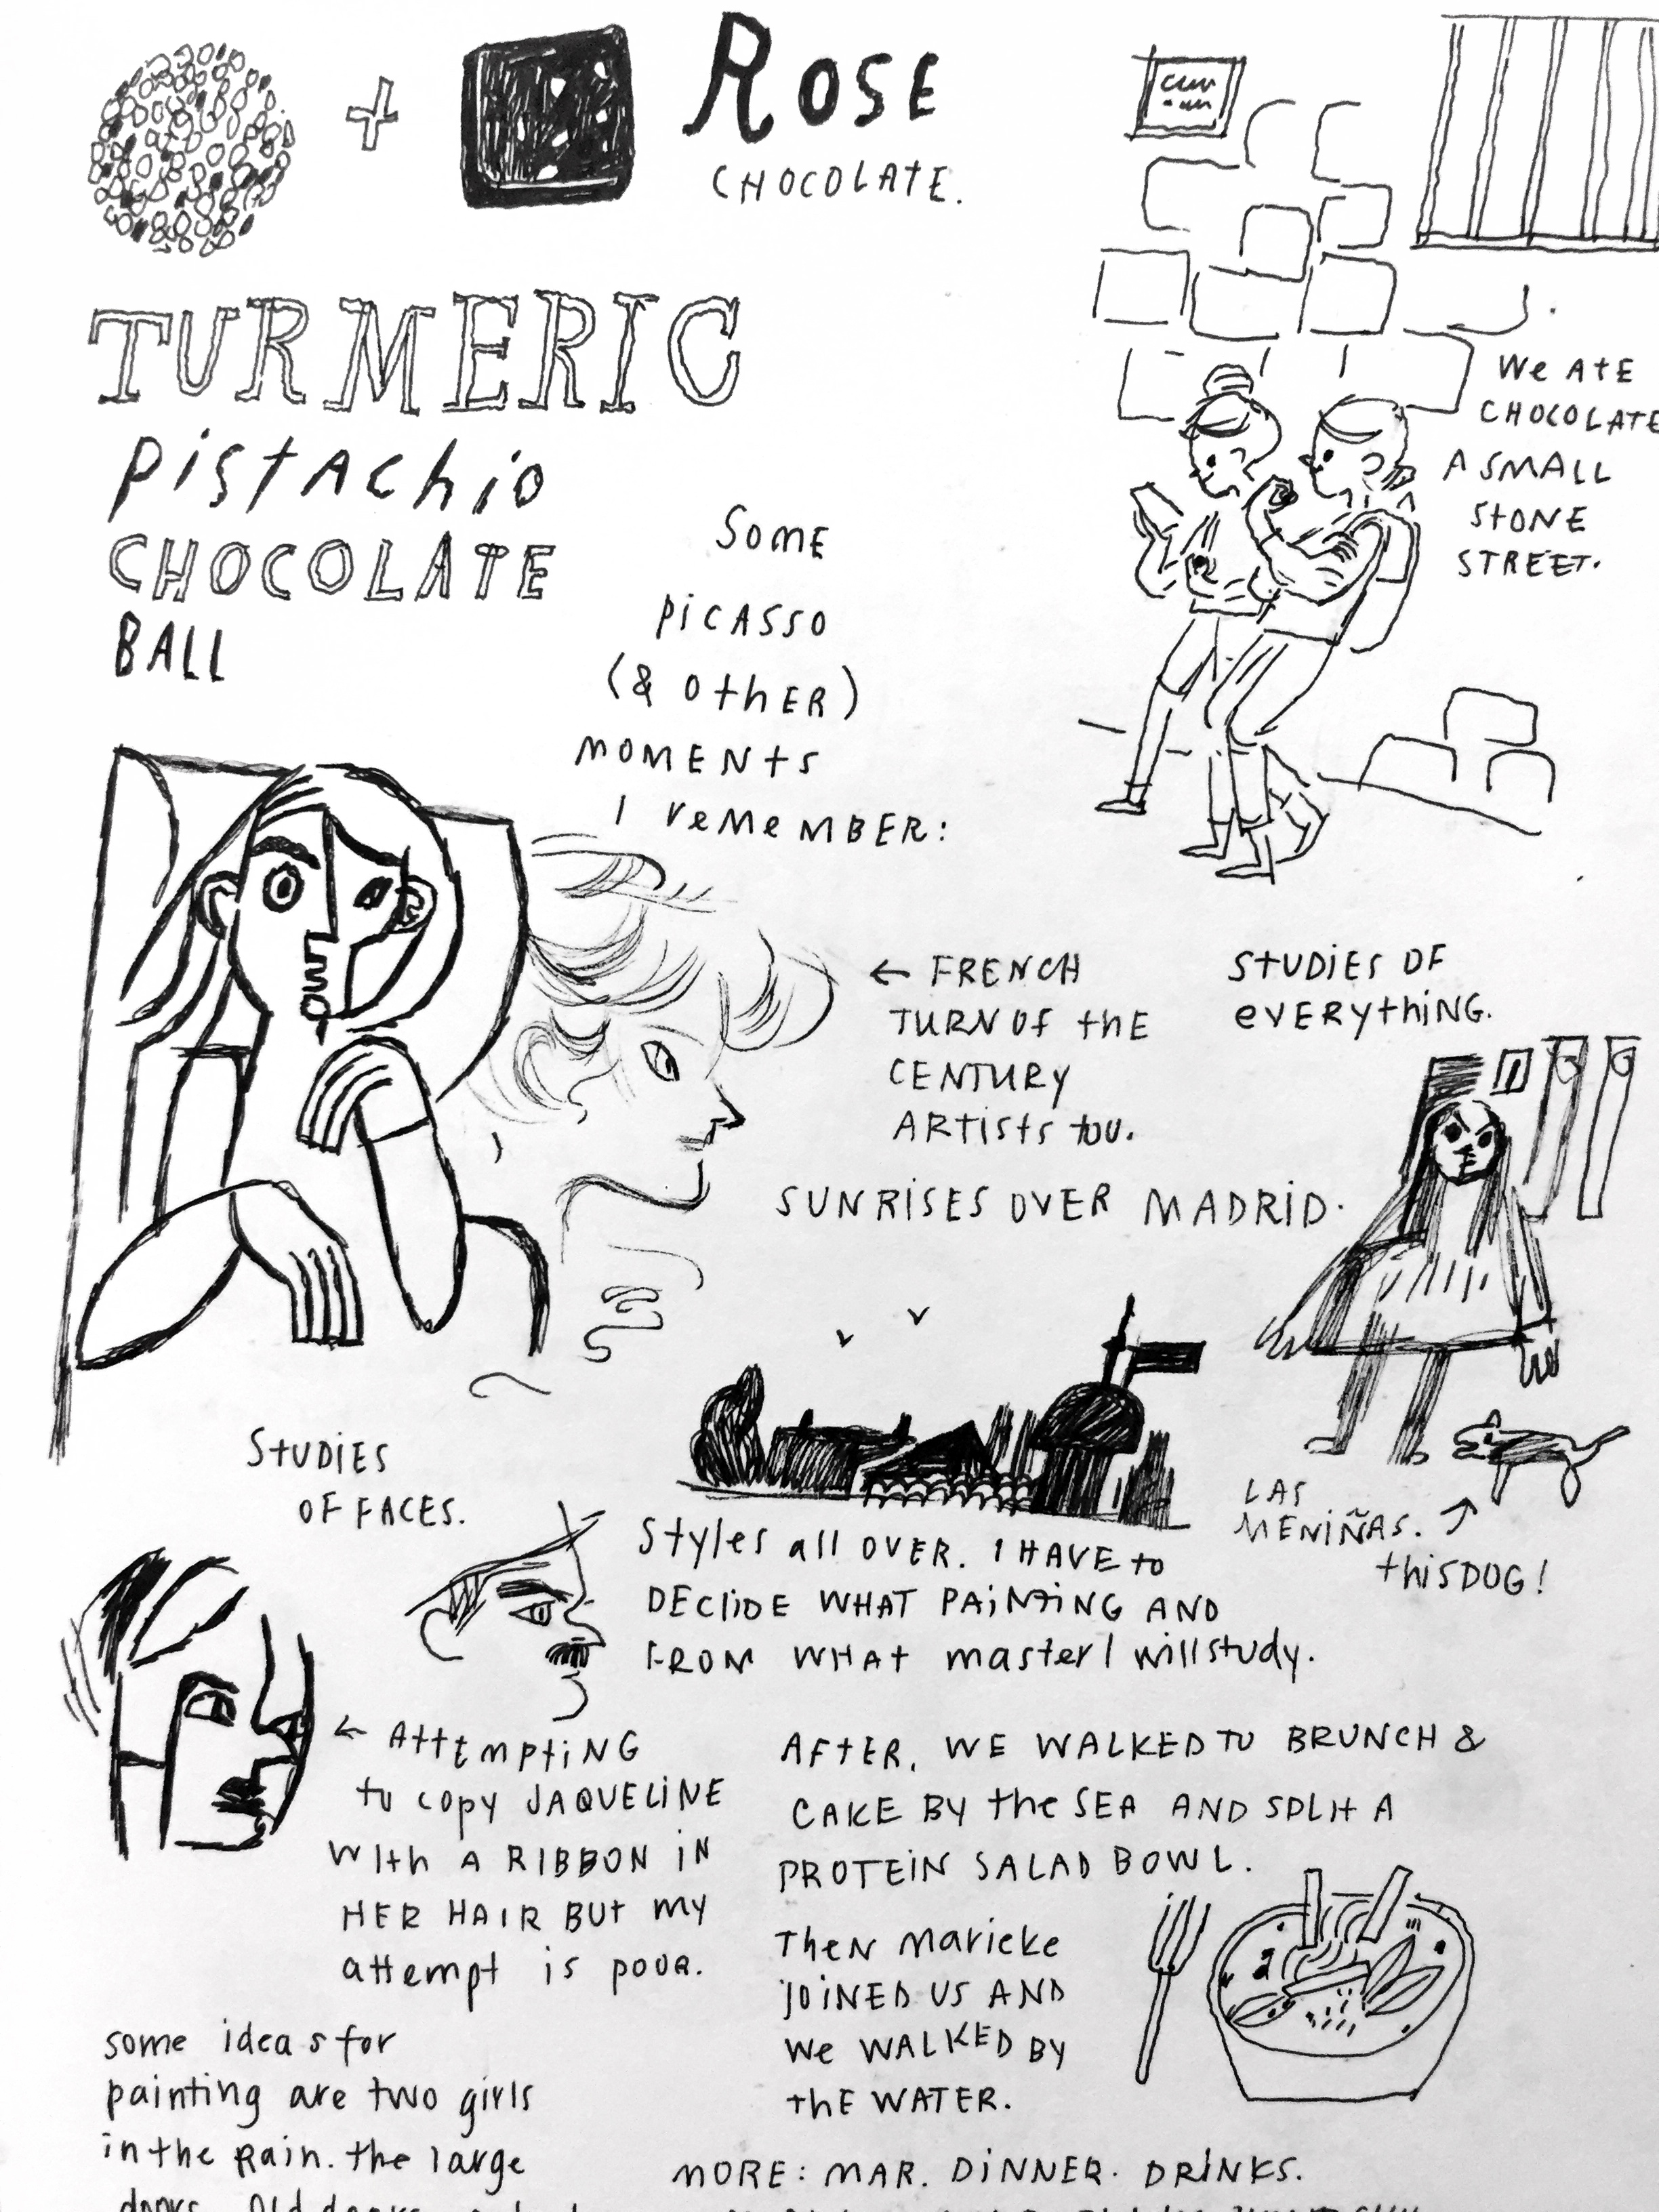 ROSE
CHOCOLATE.
TURMERIC
pistachio
CHOCOLATE
BALL
We ATE
CHOCOLATE
A SMALL
STONE
STREET.
SOME
PICASSO
(& OTHER)
MOMENTS
I REMEMBER:
← FRENCH
TURN OF THE
CENTURY
ARTISTS TOO.
STUDIES OF
EVERYTHING.
SUNRISES OVER MADRID.
LAS
MENIÑAS.
THIS DOG!
STUDIES
OF FACES.
Styles all OVER. I HAVE to
DECIIDE WHAT PAINTING AND
FROM WHAT master I will study.
← Attempting
to copy JAQUELINE
WITH A RIBBON IN
HER HAIR BUT my
attempt is POOR.
AFTER, WE WALKED TO BRUNCH &
CAKE BY the SEA AND SPLIT A
PROTEIN SALAD BOWL.
THEN Marieke
JOINED US AND
We WALKED BY
the WATER.
some ideas for
painting are two girls
in the Rain. the large
MORE: MAR. DINNER. DRINKS.